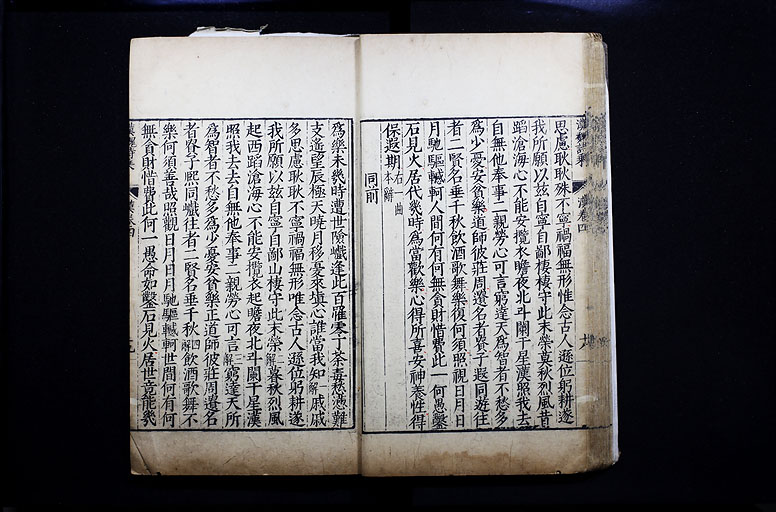 思慮耿耿殊不寧禍福無形惟念古人遜位躬耕遂
我所願以茲自寧自鄙棲棲守此末榮莫秋烈風昔
蹈滄海心不能安攬衣瞻夜北斗闌干星漢照我去
自無他奉事二親勞心可言窮達天爲智者不愁多
爲少憂安貧樂道師彼莊周遺名者貴子遐同遊往
者二賢名垂千秋飲酒歌舞樂復何須照視日月日
月馳驅轗軻人間何有何無貪財惜費此一何愚鑿
石見火居代幾時爲當歡樂心得所喜安神養性得
保遐期右一曲本辭
同前
爲樂未幾時遭世險巇逢此百罹零丁荼毒愁懣難
支遙望辰極天曉月移憂來塡心誰當我知一解戚戚
多思慮耿耿不寧禍福無形唯念古人遜位躬耕遂
我所願以茲自寧自鄙山棲守此末榮二解暮秋烈風
起西蹈滄海心不能安攬衣起瞻夜北斗闌干星漢
照我去去自無他奉事二親勞心可言三解窮達天所
爲智者不愁多爲少憂安貧樂正道師彼莊周遺名
者貴子熙同巇往者二賢名垂千秋四解飲酒歌舞不
樂何須善哉照觀日月日月馳驅轗軻世間何有何
無貪財惜費此何一愚命如鑿石見火居世竟能幾